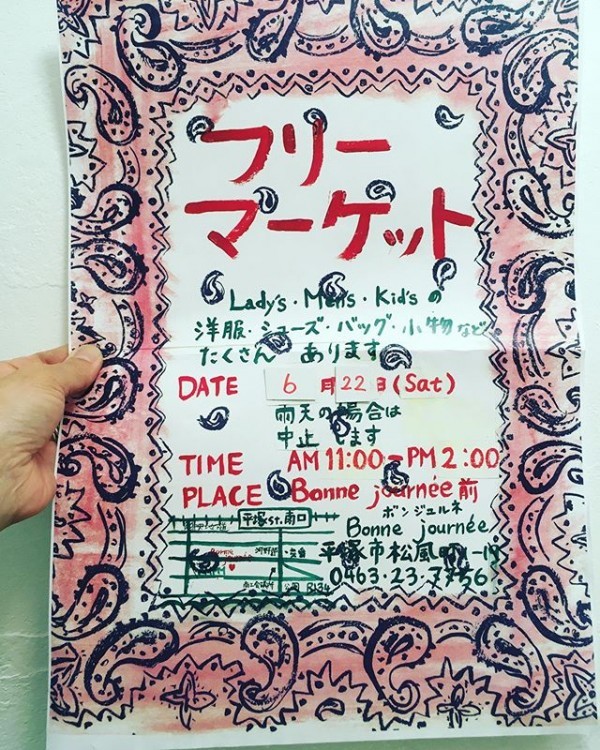 フリー
マーケット
Lady's・Men's・Kid'sの
洋服・シューズ・バッグ・小物など
たくさん あります
DATE 6月22日(Sat)
雨天の場合は
中止します
TIME AM 11:00-PM 2:00
PLACE Bonne journée前
ボンジュルネ
Bonne journée
平塚市松風町
0463・23・7756
平塚St.南口
公園 R134